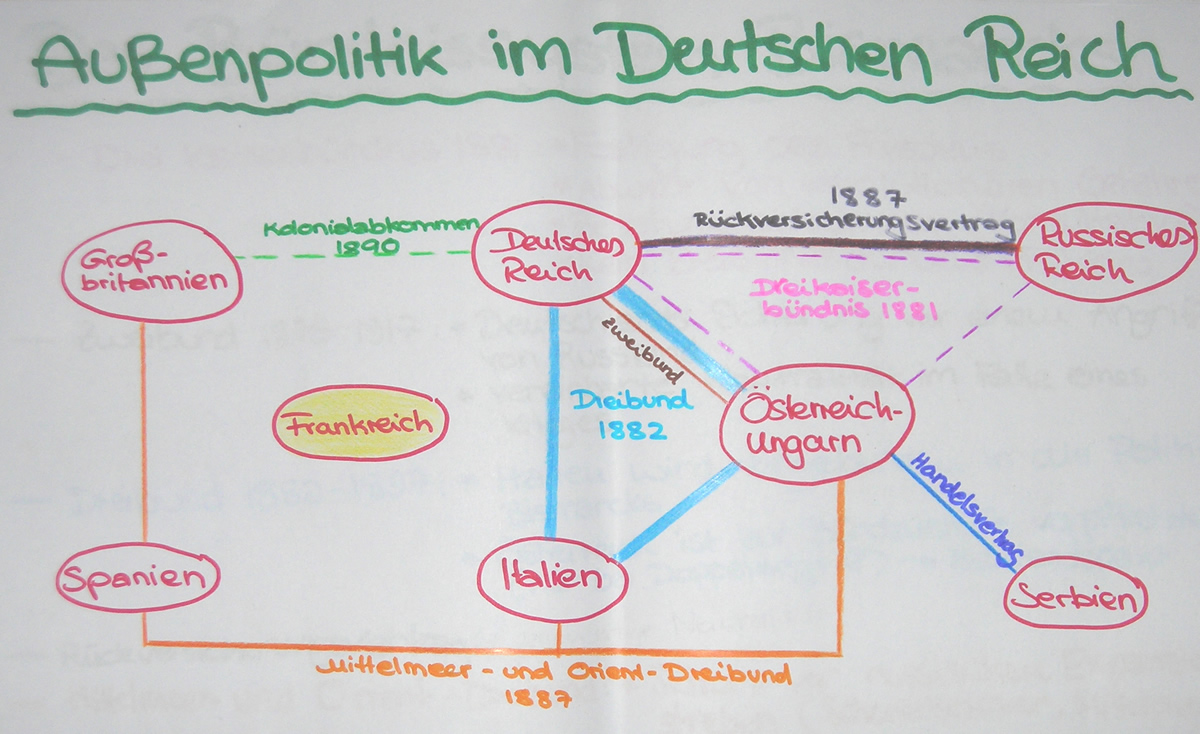 Außenpolitik im Deutschen Reich
1887
Rückversicherungsvertrag
Kolonialabkommen
1890
Groß-
britannien
Deutsches
Reich
Russisches
Reich
Dreikaiser-
bündnis 1881
Zweibund
Dreibund
1882
Frankreich
Österreich-
Ungarn
Handelsvertrag
Spanien
Italien
Serbien
Mittelmeer- und Orient-Dreibund
1887